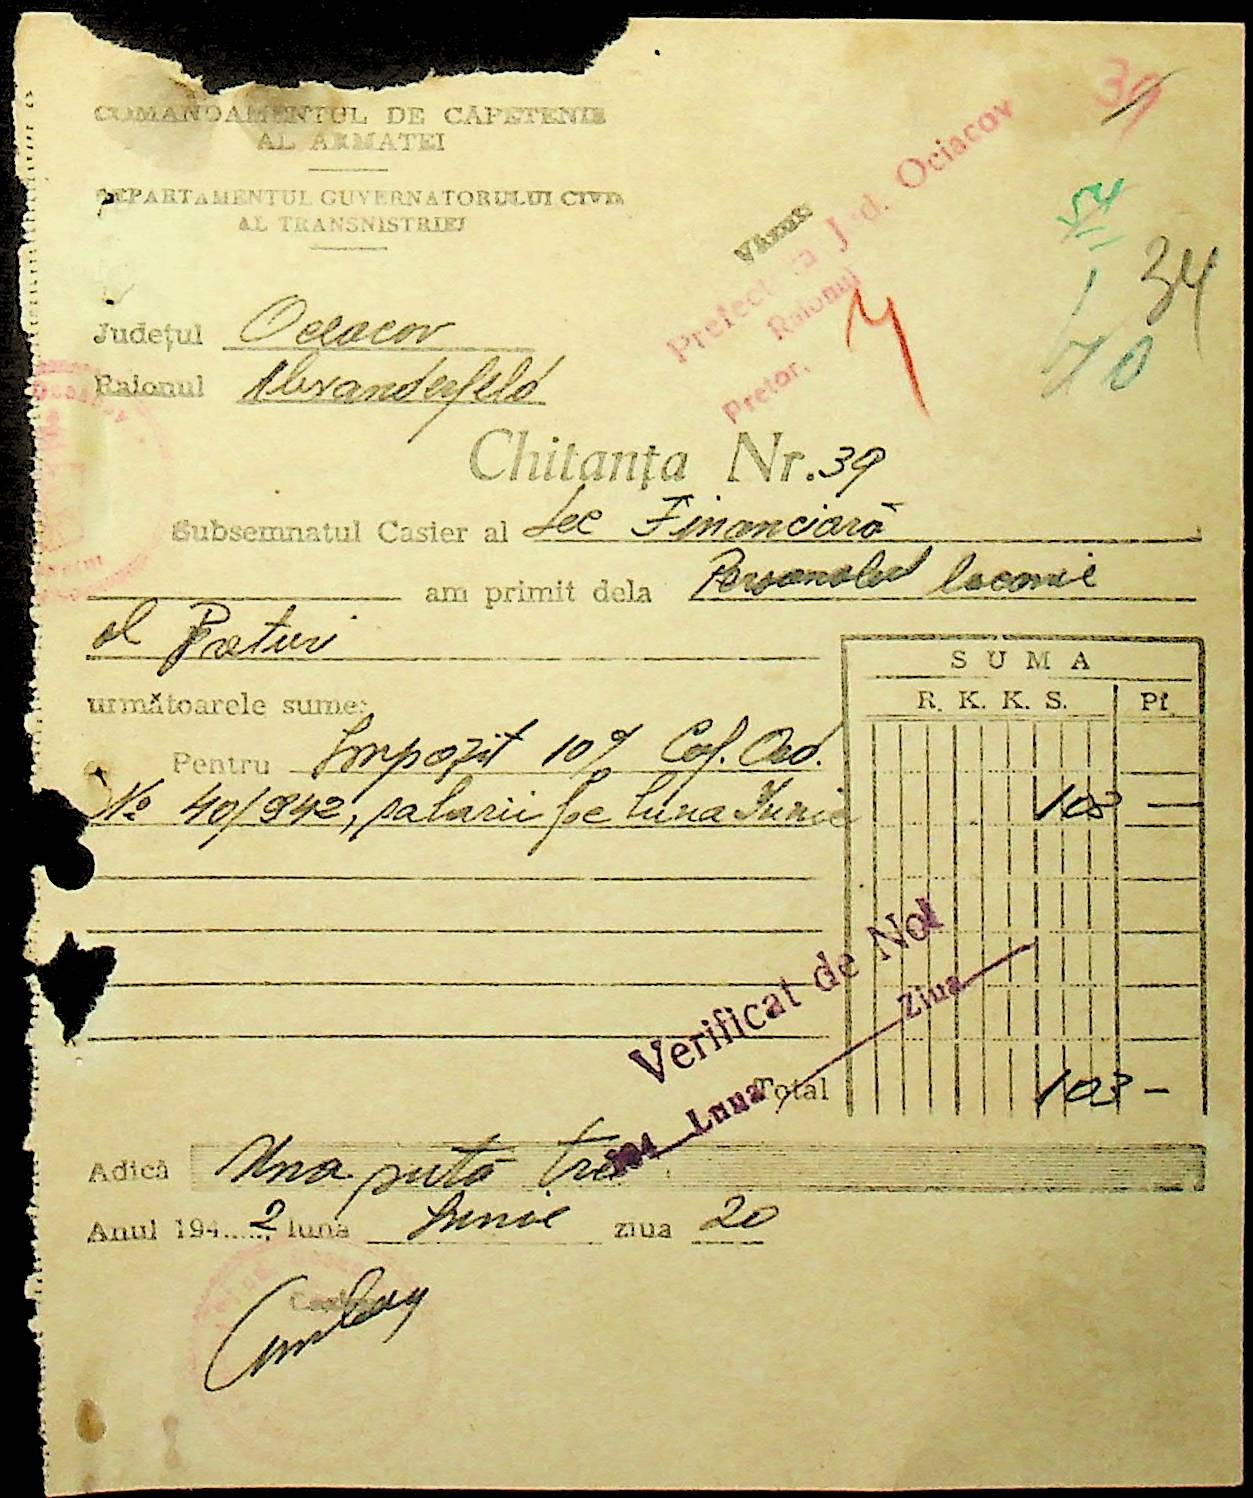 COMANDAMENTUL DE CĂPETENIE
AL ARMATEI
DEPARTAMENTUL GUVERNATORULUI CIVIL
AL TRANSNISTRIEI
39
54
34
40
Văzut
Prefectura Jud. Ociacov
Raionul
Pretor,
Județul Oceacov
Raionul Alexanderfeld
Chitanța Nr. 39
Subsemnatul Casier al Sec Financiară
am primit dela Personalul localnic
al Preturi
SUMA
R. K. K. S. Pf
următoarele sume:
Pentru Impozit 10% Cof. Ord.
No 40/942, salarii pe luna Iunie 103 —
Verificat de Noi
194 Luna Ziua
Total 103 -
Adică Una sută trei
Anul 194 2, luna Iunie ziua 20
Casier